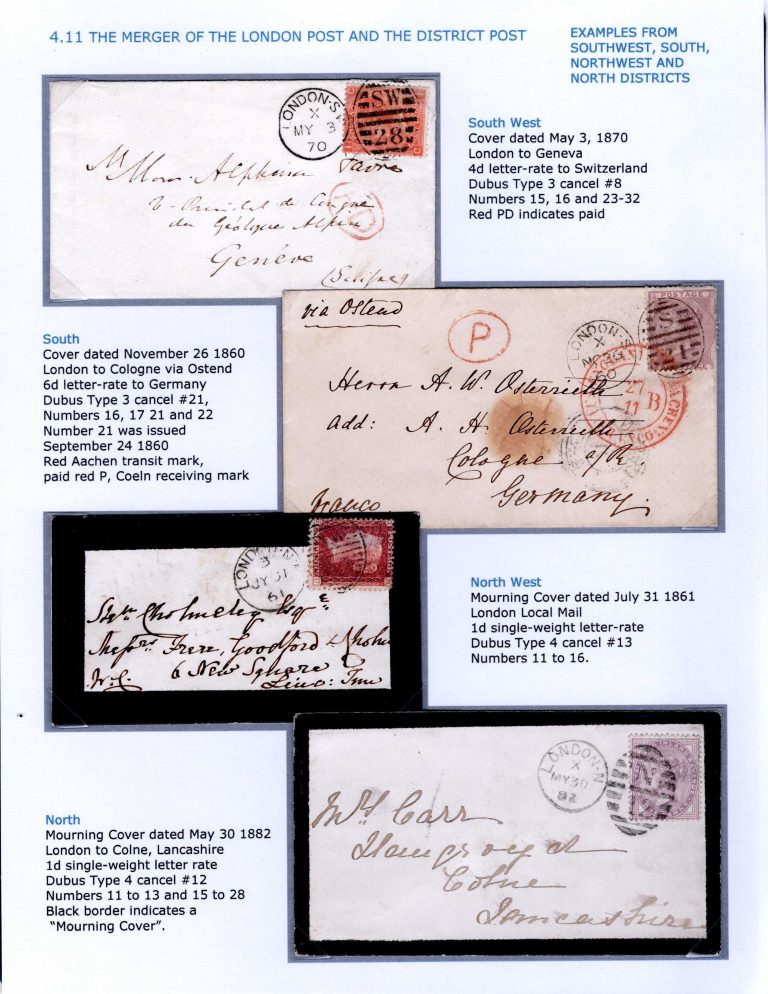 4.11 THE MERGER OF THE LONDON POST AND THE DISTRICT POST
EXAMPLES FROM
SOUTHWEST, SOUTH,
NORTHWEST AND
NORTH DISTRICTS
LONDON-S.W
X
MY 3
70
SW
28
Alphonse Favre
Président de
Géologue Alpin
Genève
(Suisse)
PD
South West
Cover dated May 3, 1870
London to Geneva
4d letter-rate to Switzerland
Dubus Type 3 cancel #8
Numbers 15, 16 and 23-32
Red PD indicates paid
South
Cover dated November 26 1860
London to Cologne via Ostend
6d letter-rate to Germany
Dubus Type 3 cancel #21,
Numbers 16, 17 21 and 22
Number 21 was issued
September 24 1860
Red Aachen transit mark,
paid red P, Coeln receiving mark
via Ostend
P
LONDON-S
X
NO 26
60
POSTAGE
S
21
27
11
B
Herrn A. W. Osterrieth
Add: A. H. Osterrieth
Cologne a/R
Germany.
franco
LONDON-N.W
3
JY 31
61
Cholmeley Esqre
Messrs Frere, Goodford & Cholm
6 New Square
W.C. Linc: Inn
North West
Mourning Cover dated July 31 1861
London Local Mail
1d single-weight letter-rate
Dubus Type 4 cancel #13
Numbers 11 to 16.
North
Mourning Cover dated May 30 1882
London to Colne, Lancashire
1d single-weight letter rate
Dubus Type 4 cancel #12
Numbers 11 to 13 and 15 to 28
Black border indicates a
"Mourning Cover".
LONDON-N
X
MY 30
82
N
Mrs Carr
Colne
Lancashire